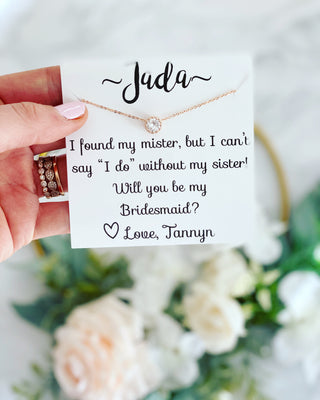 ~Jada~
I found my mister, but I can't
say "I do" without my sister!
Will you be my
Bridesmaid?
♡ Love, Tannyn